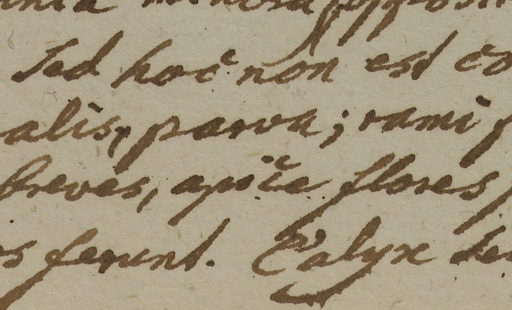 Sed hoc non est co
alis, parva; rami
breves, apice flores
s ferunt. Calyx